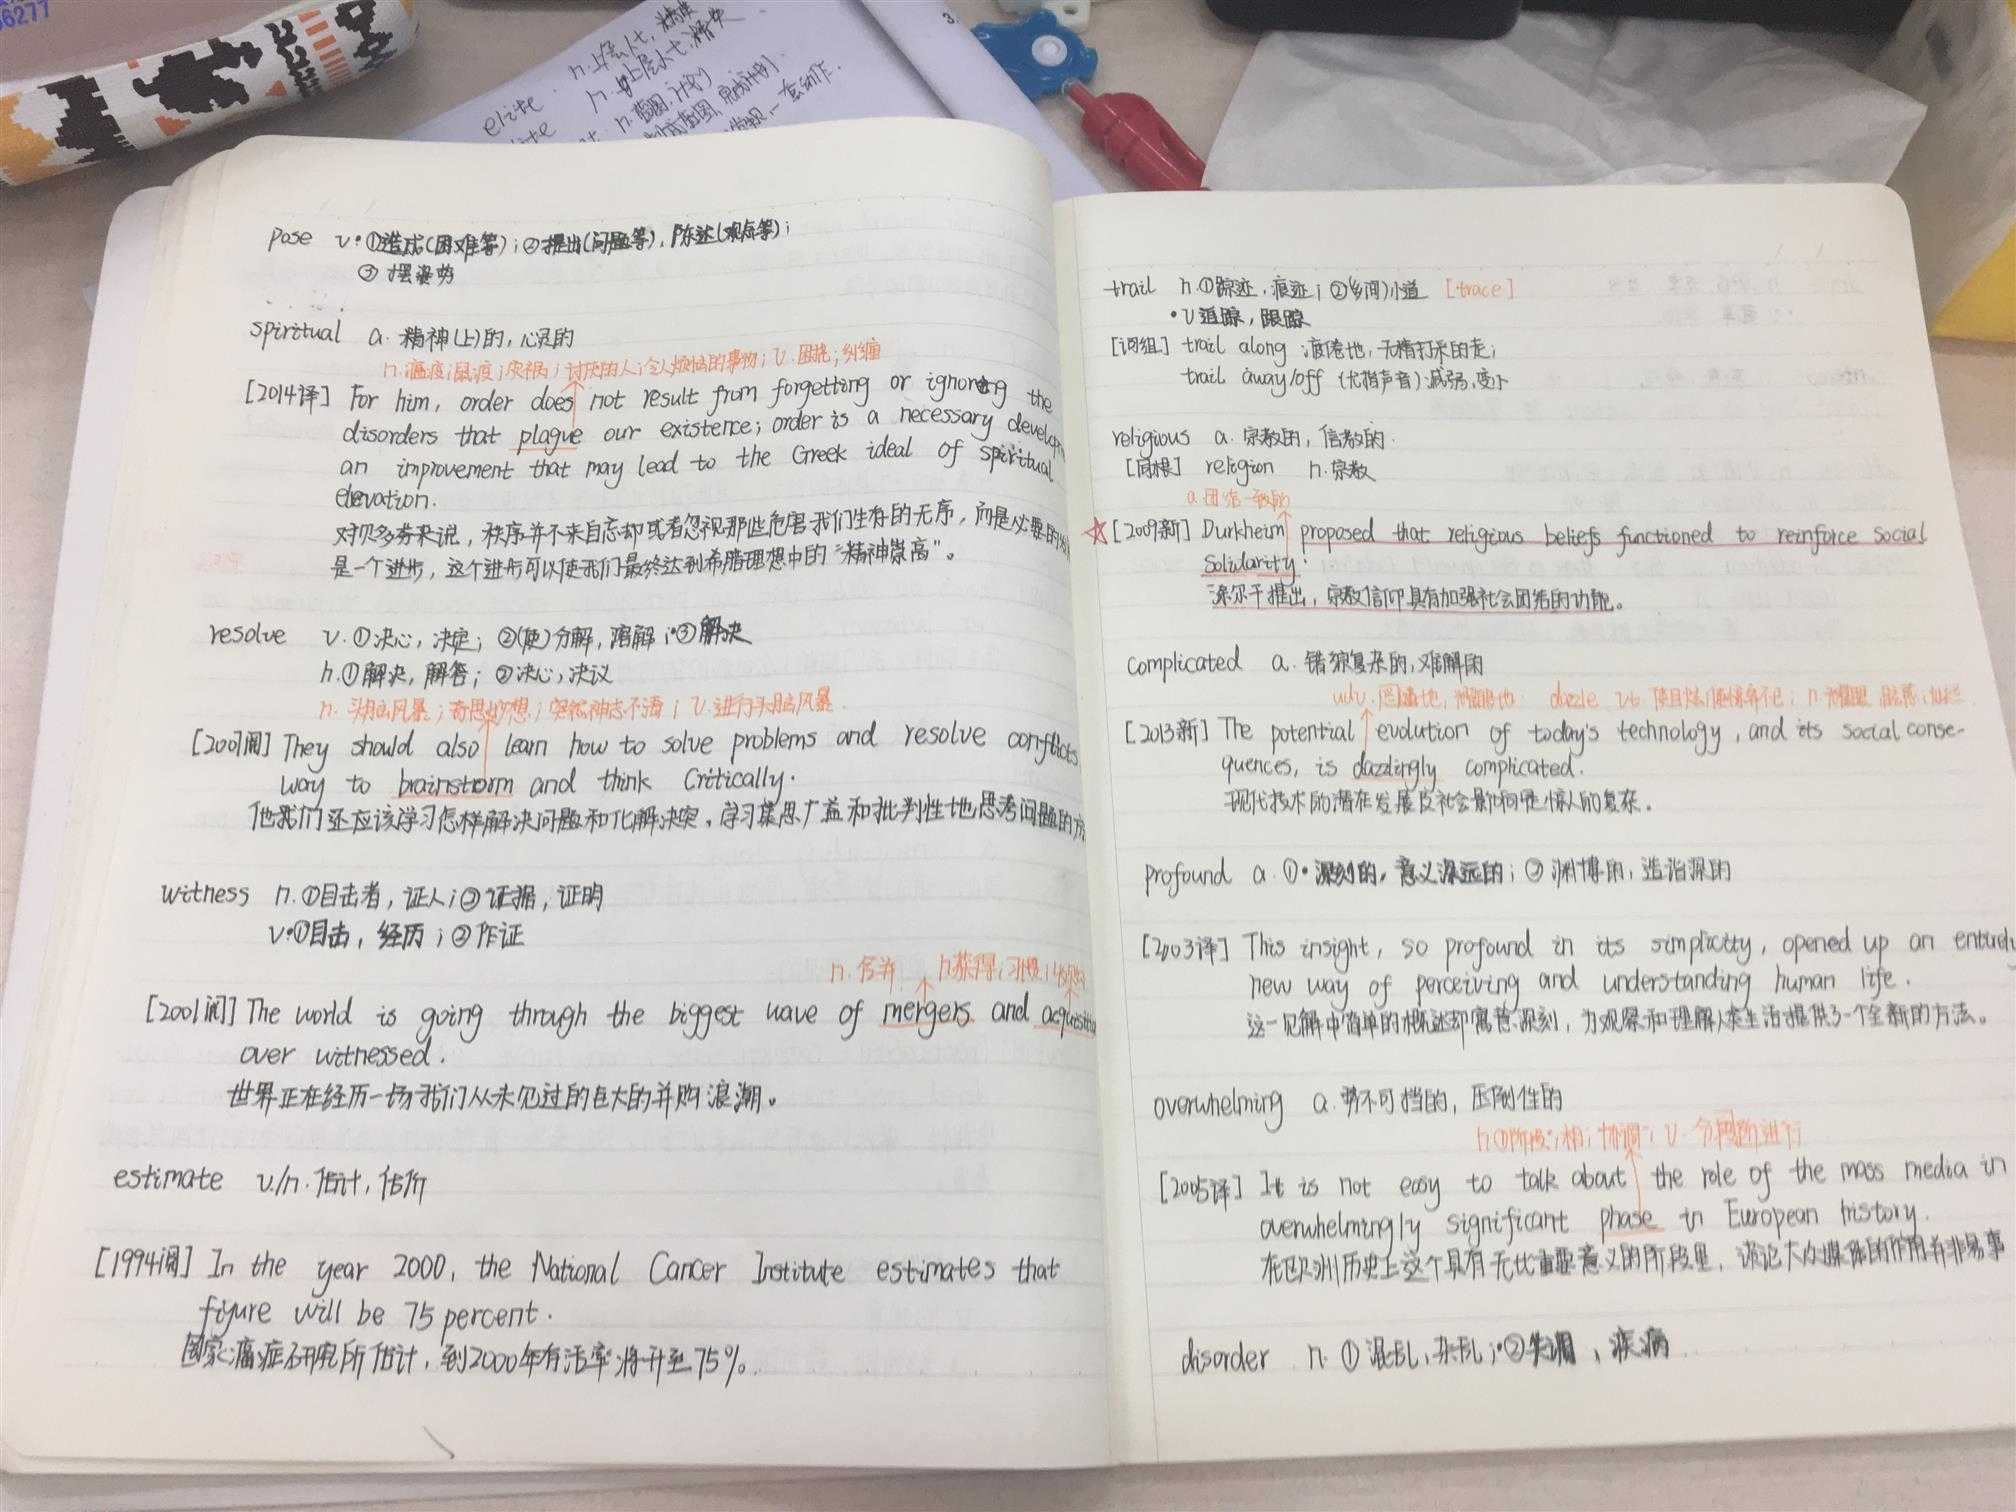 6277
3.
elite n.
pose v.①造成(困难等)；②提出(问题等)，陈述(观点等)；
③摆姿势
spiritual a.精神(上)的，心灵的
n.瘟疫；鼠疫；灾祸；讨厌的人；令人烦恼的事物；v.困扰；纠缠
[2014译] For him, order does not result from forgetting or ignoring the
disorders that plague our existence; order is a necessary develop
an improvement that may lead to the Greek ideal of spiritual
elevation.
对贝多芬来说，秩序并不来自忘却或者忽视那些危害我们生存的无序，而是必要的
是一个进步，这个进步可以使我们最终达到希腊理想中的"精神崇高"。
resolve v.①决心，决定；②(使)分解，溶解；③解决
n.①解决，解答；②决心，决议
n.头脑风暴；奇思妙想；突然神志不清；v.进行头脑风暴
[2007阅] They should also learn how to solve problems and resolve conflicts
way to brainstorm and think Critically.
他们还应该学习怎样解决问题和化解决突，学习集思广益和批判性地思考问题的方
witness n.①目击者，证人；②证据，证明
v.①目击，经历；②作证
n.合并 n.获得；习惯；
[2001阅] The world is going through the biggest wave of mergers and acquisitio
over witnessed.
世界正在经历一场我们从未见过的巨大的并购浪潮。
estimate v./n.估计，估价
[1994阅] In the year 2000, the National Cancer Institute estimates that
figure will be 75 percent.
国家癌症研究所估计，到2000年存活率将升至75%。
trail n.①踪迹，痕迹；②(乡间)小道 [trace]
v追踪，跟踪
[词组] trail along 疲倦地，无精打采的走；
trail away/off (尤指声音)减弱，变小
religious a.宗教的，信教的.
[同根] religion n.宗教
a.团结一致的
[2009新] Durkheim proposed that religious beliefs functioned to reinforce social
solidarity.
涂尔干提出，宗教信仰具有加强社会团结的功能。
complicated a.错综复杂的，难解的
adv. dazzle vt.
[2013新] The potential evolution of today's technology, and its social conse-
quences, is dazzlingly complicated.
现代技术的潜在发展及社会影响是惊人的复杂。
profound a.①深刻的，意义深远的；②渊博的，造诣深的
[2003译] This insight, so profound in its simplicity, opened up an entirely
new way of perceiving and understanding human life.
这一见解中简单的概述却寓意深刻，为观察和理解人类生活提供了一个全新的方法。
overwhelming a.势不可挡的，压倒性的
n.①阶段；相；v.分阶段进行
[2005译] It is not easy to talk about the role of the mass media in
overwhelmingly significant phase in European history.
在欧洲历史上这个具有无比重要意义的阶段里，谈论大众媒体的作用并非易事
disorder n.①混乱，杂乱；②失调，疾病